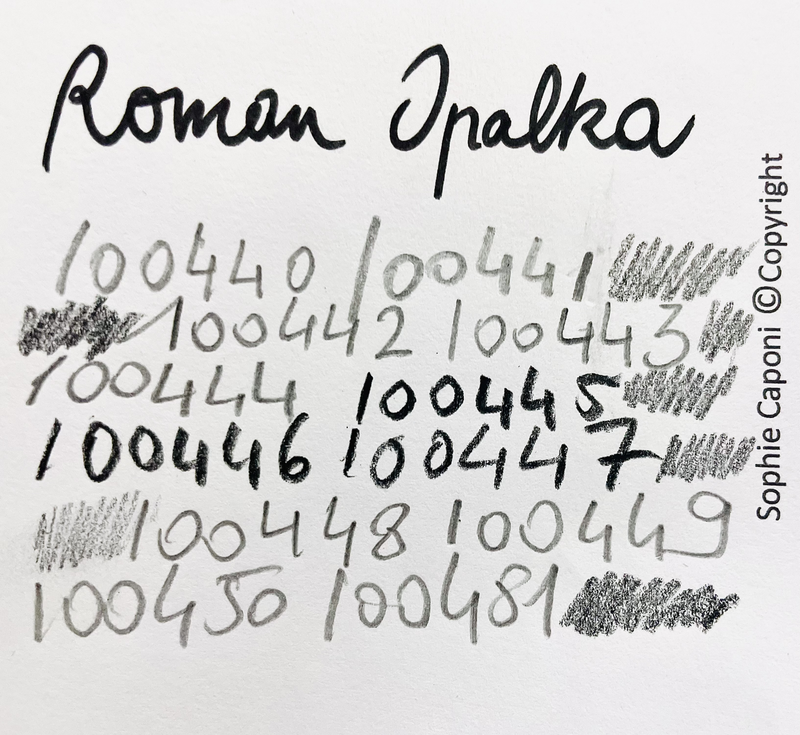 Roman Opalka
100440 100441
100442 100443
100444 100445
100446 100447
100448 100449
100450 100481
Sophie Caponi ©Copyright